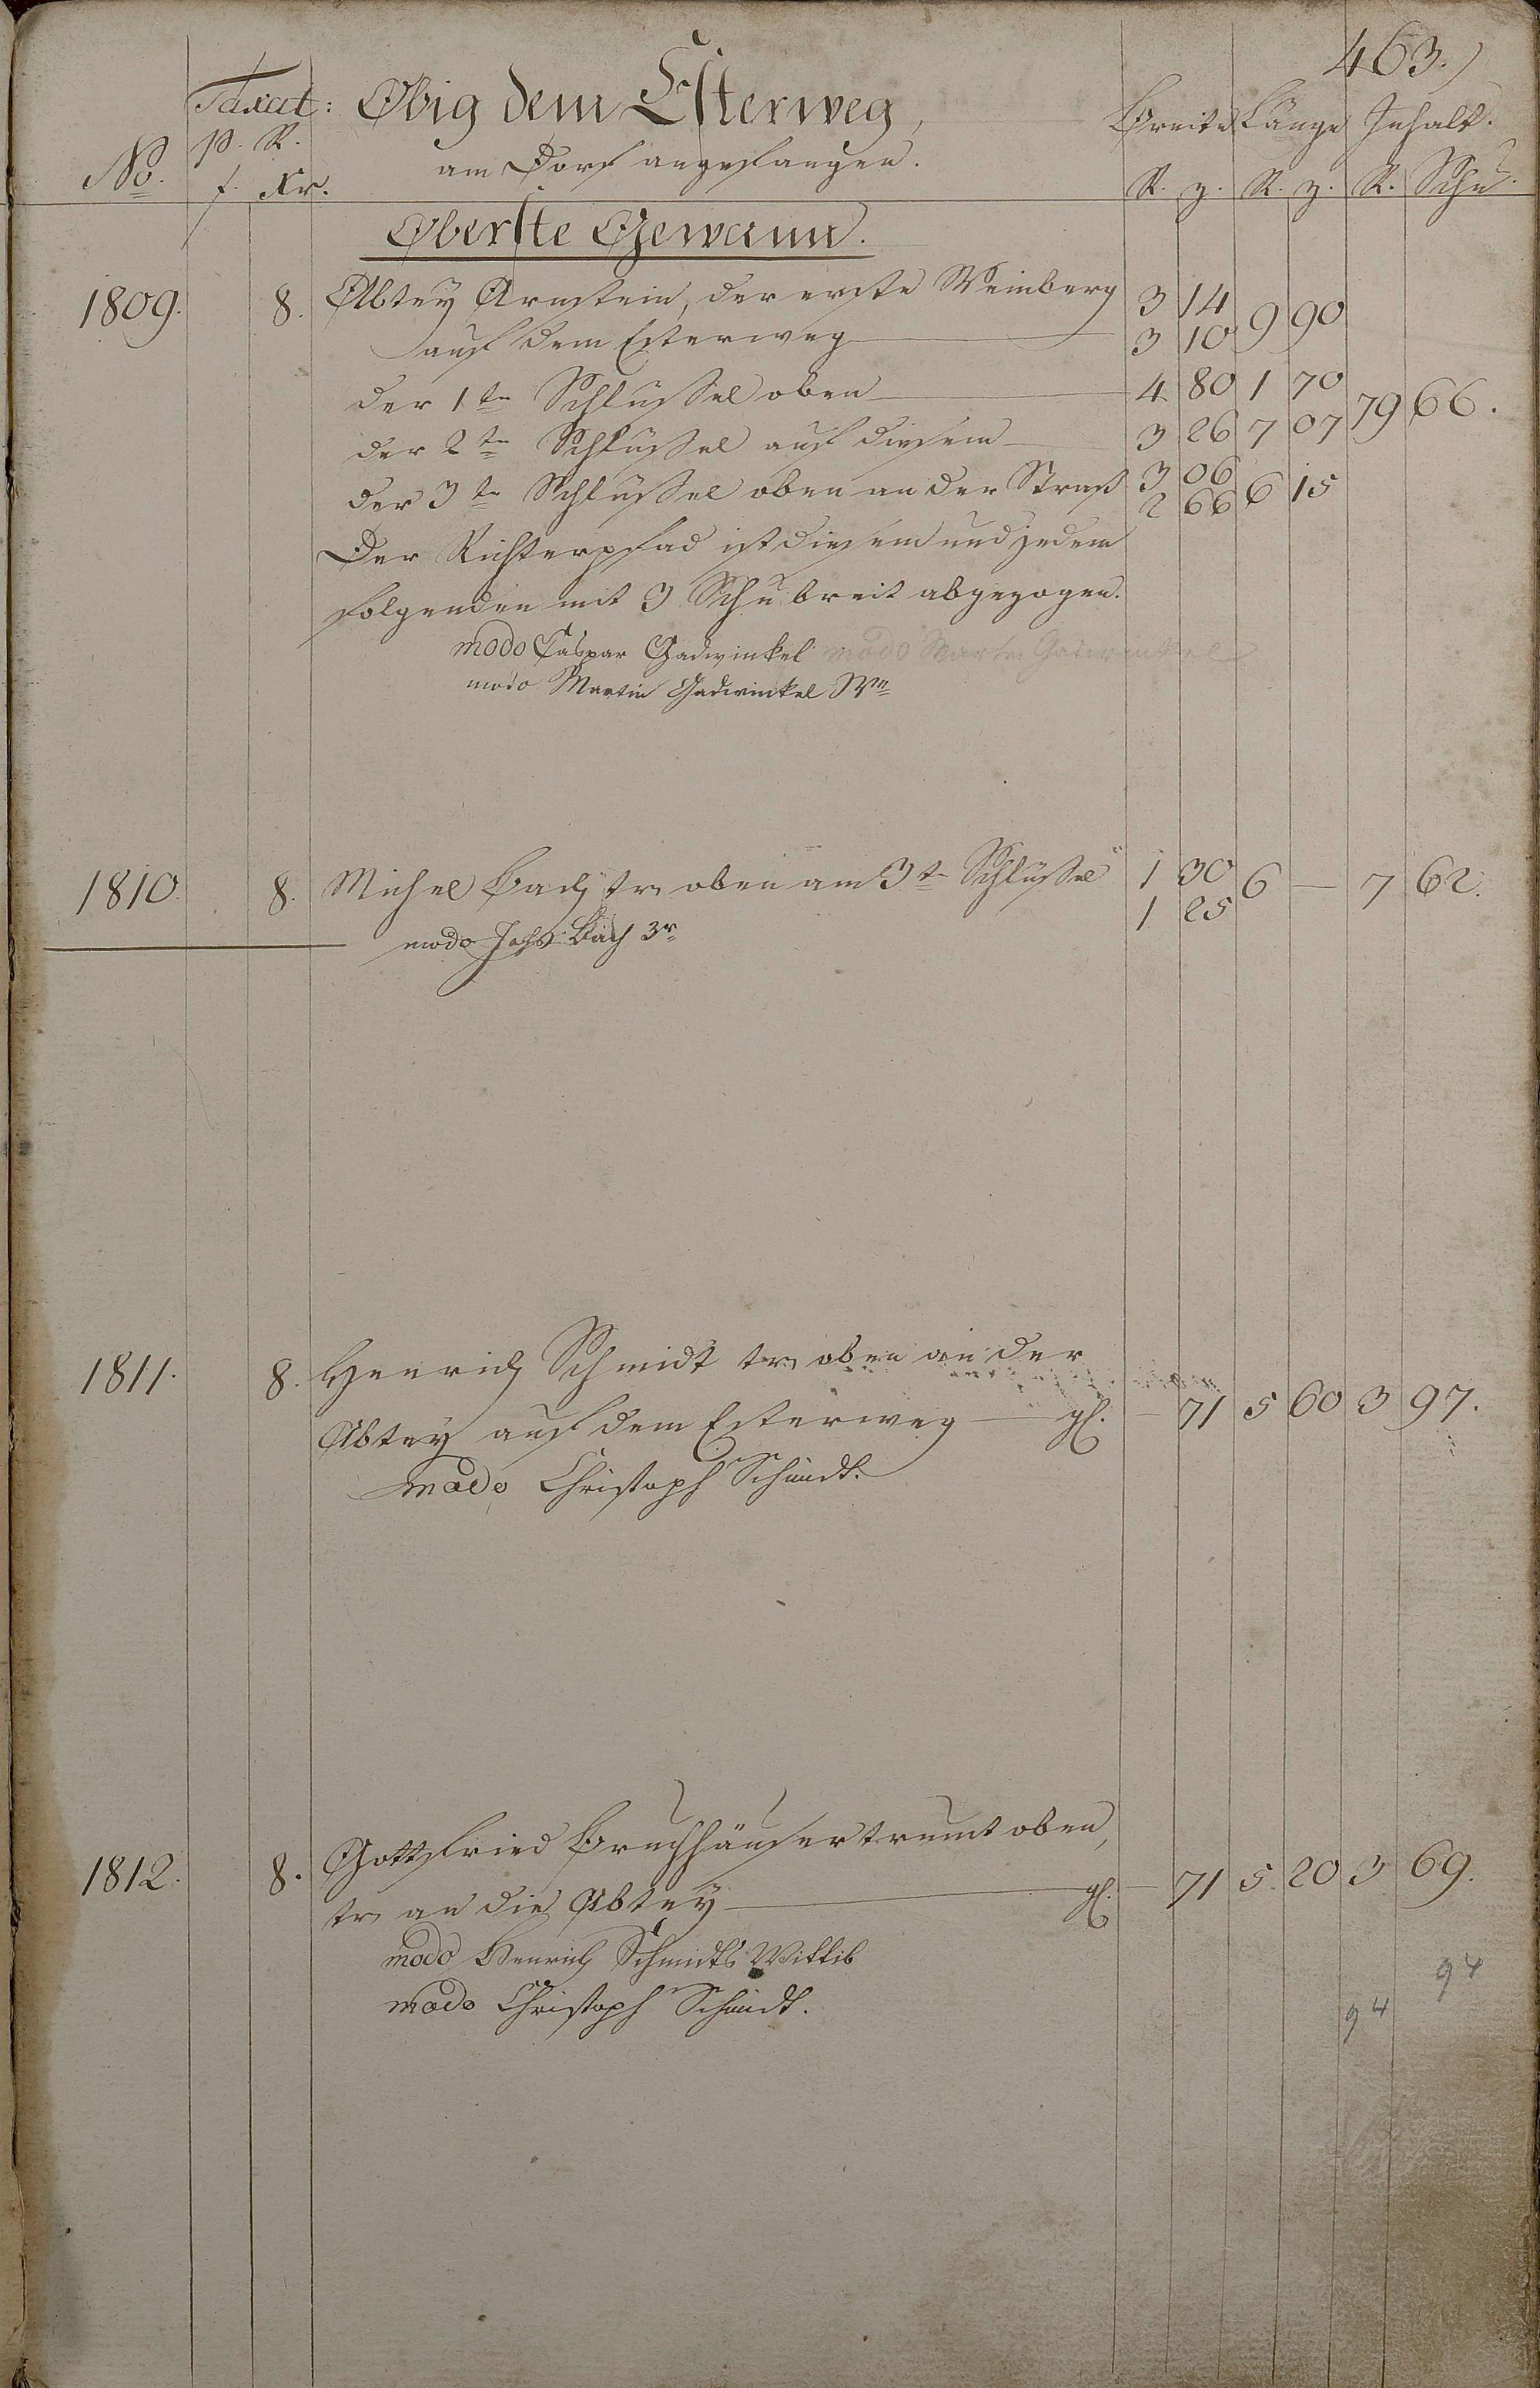 463.)
Taxat: Obig dem Esterweg, Breite Länge Inhalt.
No. p. R. am Dorf angefangen.
f. Xr. R. z. R. z. R. Schu.
Oberste Gewann.
1809. 8. Abtey Arnstein, der erste Weinberg 3 14
auf dem Esterweg 3 10 9 90
der 1te Schlüssel oben 4 80 1 70
der 2te Schlüssel auf diesem 3 26 7 07 79 66.
der 3te Schlüssel oben an der Straß 3 06
2 66 6 15
Der Richterpfad ist diesem und jedem
folgenden mit 3 Schu breit abgezogen.
modo Caspar Gadwinkel modo Martin Gadwinkel
modo Martin Gadwinkel Wm
1810. 8. Michel Bach tr. oben am 3t Schlüssel 1 30 6 — 7 62.
1 25
modo Johs Bach 3r
1811. 8. Henrich Schmidt tr. oben an der
Abtey auf dem Esterweg — gl. — 71 5 60 3 97.
modo Christoph Schmidt.
1812. 8. Gottfried Bruchhäuser trumt oben,
tr. an die Abtey — gl. — 71 5 20 3 69.
modo Henrich Schmidts Wittib
modo Christoph Schmidt.
94
94